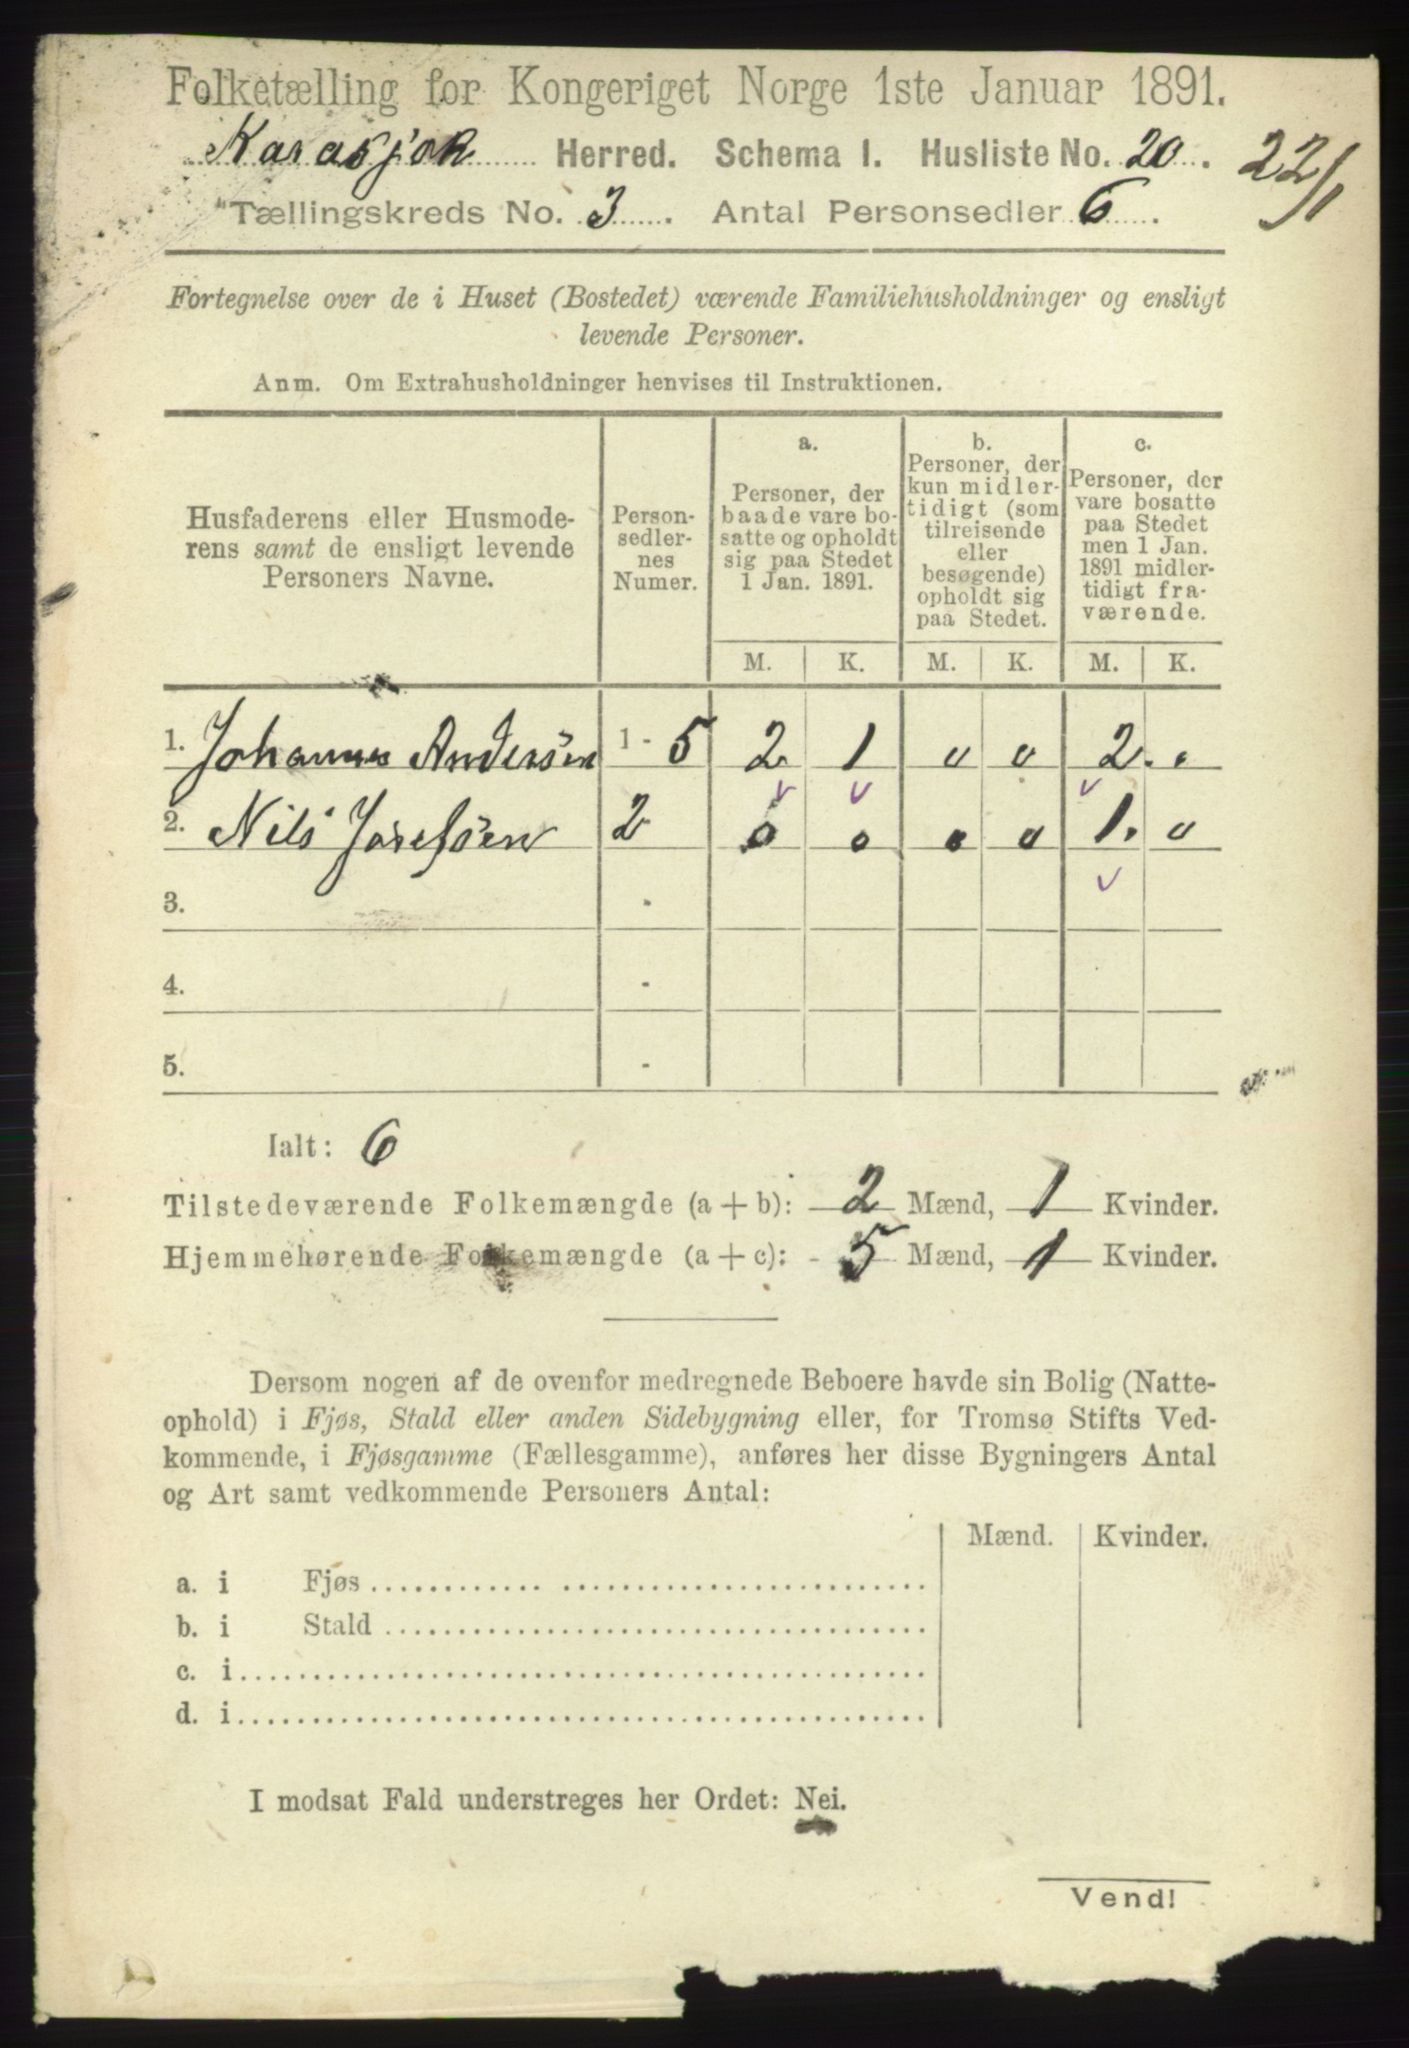 Folketælling for Kongeriget Norge 1ste Januar 1891.
Karasjok Herred. Schema I. Husliste No. 20.
22/1
Tællingskreds No. 3. Antal Personsedler 6.
Fortegnelse over de i Huset (Bostedet) værende Familiehusholdninger og ensligt
levende Personer.
Anm. Om Extrahusholdninger henvises til Instruktionen.
Husfaderens eller Husmode-
rens samt de ensligt levende
Personers Navne.
Person-
sedler-
nes
Numer.
a.
Personer, der
baade vare bo-
satte og opholdt
sig paa Stedet
1 Jan. 1891.
b.
Personer, der
kun midler-
tidigt (som
tilreisende
eller
besøgende)
opholdt sig
paa Stedet.
c.
Personer, der
vare bosatte
paa Stedet
men 1 Jan.
1891 midler-
tidigt fra-
værende.
M. K. M. K. M. K.
1. Johannes Andersen 1 - 5 2 1 0 0 2. .
2. Nils Josefsen 2 0 0 0 0 1. 0
3. -
4. -
5. -
Ialt: 6
Tilstedeværende Folkemængde (a + b): 2 Mænd, 1 Kvinder.
Hjemmehørende Folkemængde (a + c): 5 Mænd, 1 Kvinder.
Dersom nogen af de ovenfor medregnede Beboere havde sin Bolig (Natte-
ophold) i Fjøs, Stald eller anden Sidebygning eller, for Tromsø Stifts Ved-
kommende, i Fjøsgamme (Fællesgamme), anføres her disse Bygningers Antal
og Art samt vedkommende Personers Antal:
Mænd. Kvinder.
a. i Fjøs
b. i Stald
c. i
d. i
I modsat Fald understreges her Ordet: Nei.
Vend!